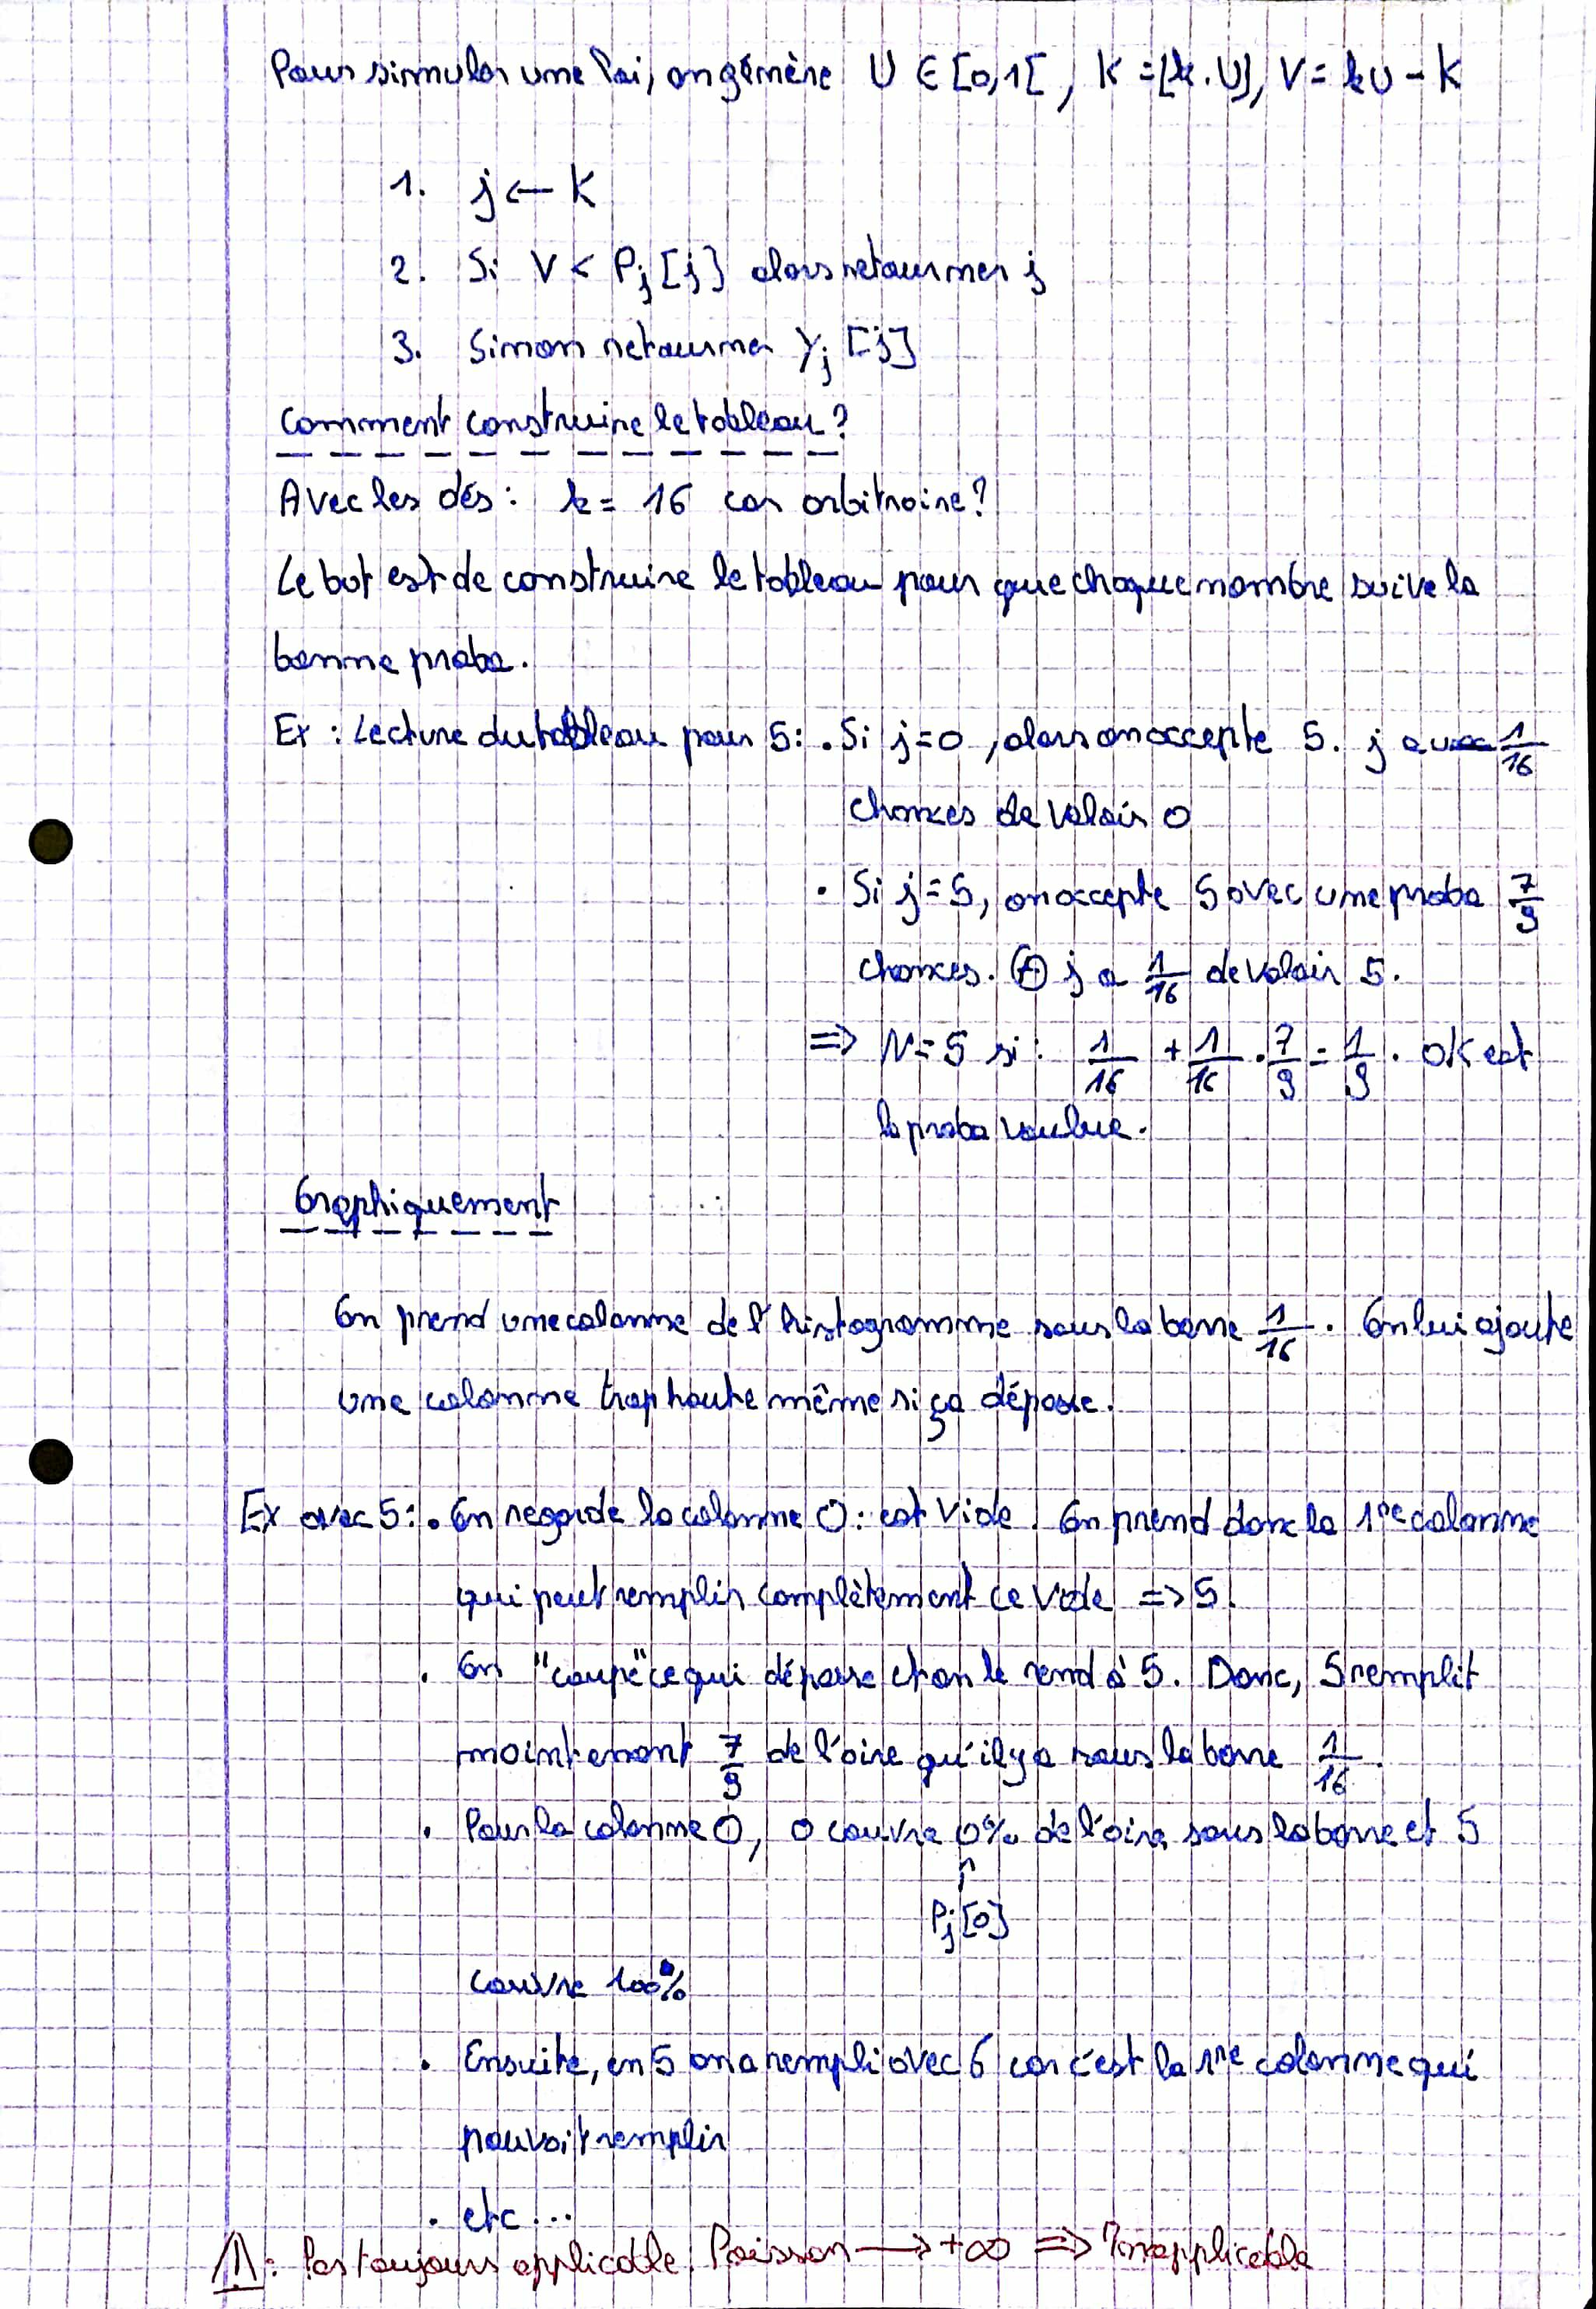 Pour simuler une loi, on génère U ∈ [0,1[, K = ⌊k.U⌋, V = kU - K
1. j ← K
2. Si V < Pj[j] alors retourner j
3. Sinon retourner Yj[j]
Comment construire le tableau ?
Avec les dés : k = 16 car arbitraire ?
Le but est de construire le tableau pour que chaque nombre suive la
bonne proba.
Ex : Lecture du tableau pour 5 : . Si j=0, alors on accepte 5. j a 1/16
chances de valoir 0
. Si j=5, on accepte 5 avec une proba 7/9
chances. ⊕ j a 1/16 de valoir 5.
=> N=5 si : 1/16 + 1/16 . 7/9 = 1/9 . OK est
la proba voulue.
Graphiquement
On prend une colonne de l'histogramme sous la barre 1/16. On lui ajoute
une colonne trop haute même si ça dépasse.
Ex avec 5 : . On regarde la colonne 0 : est vide. On prend donc la 1re colonne
qui peut remplir complètement ce vide => 5.
. On "coupe" ce qui dépasse et on le rend à 5. Donc, 5 remplit
maintenant 7/9 de l'aire qu'il y a sous la barre 1/16.
. Pour la colonne 0, 0 couvre 0% de l'aire sous la barre et 5
↑
Pj[0]
couvre 100%
. Ensuite, en 5 on a rempli avec 6 car c'est la 1re colonne qui
pouvait remplir
. etc...
⚠ : Pas toujours applicable. Poisson → +∞ => Inapplicable